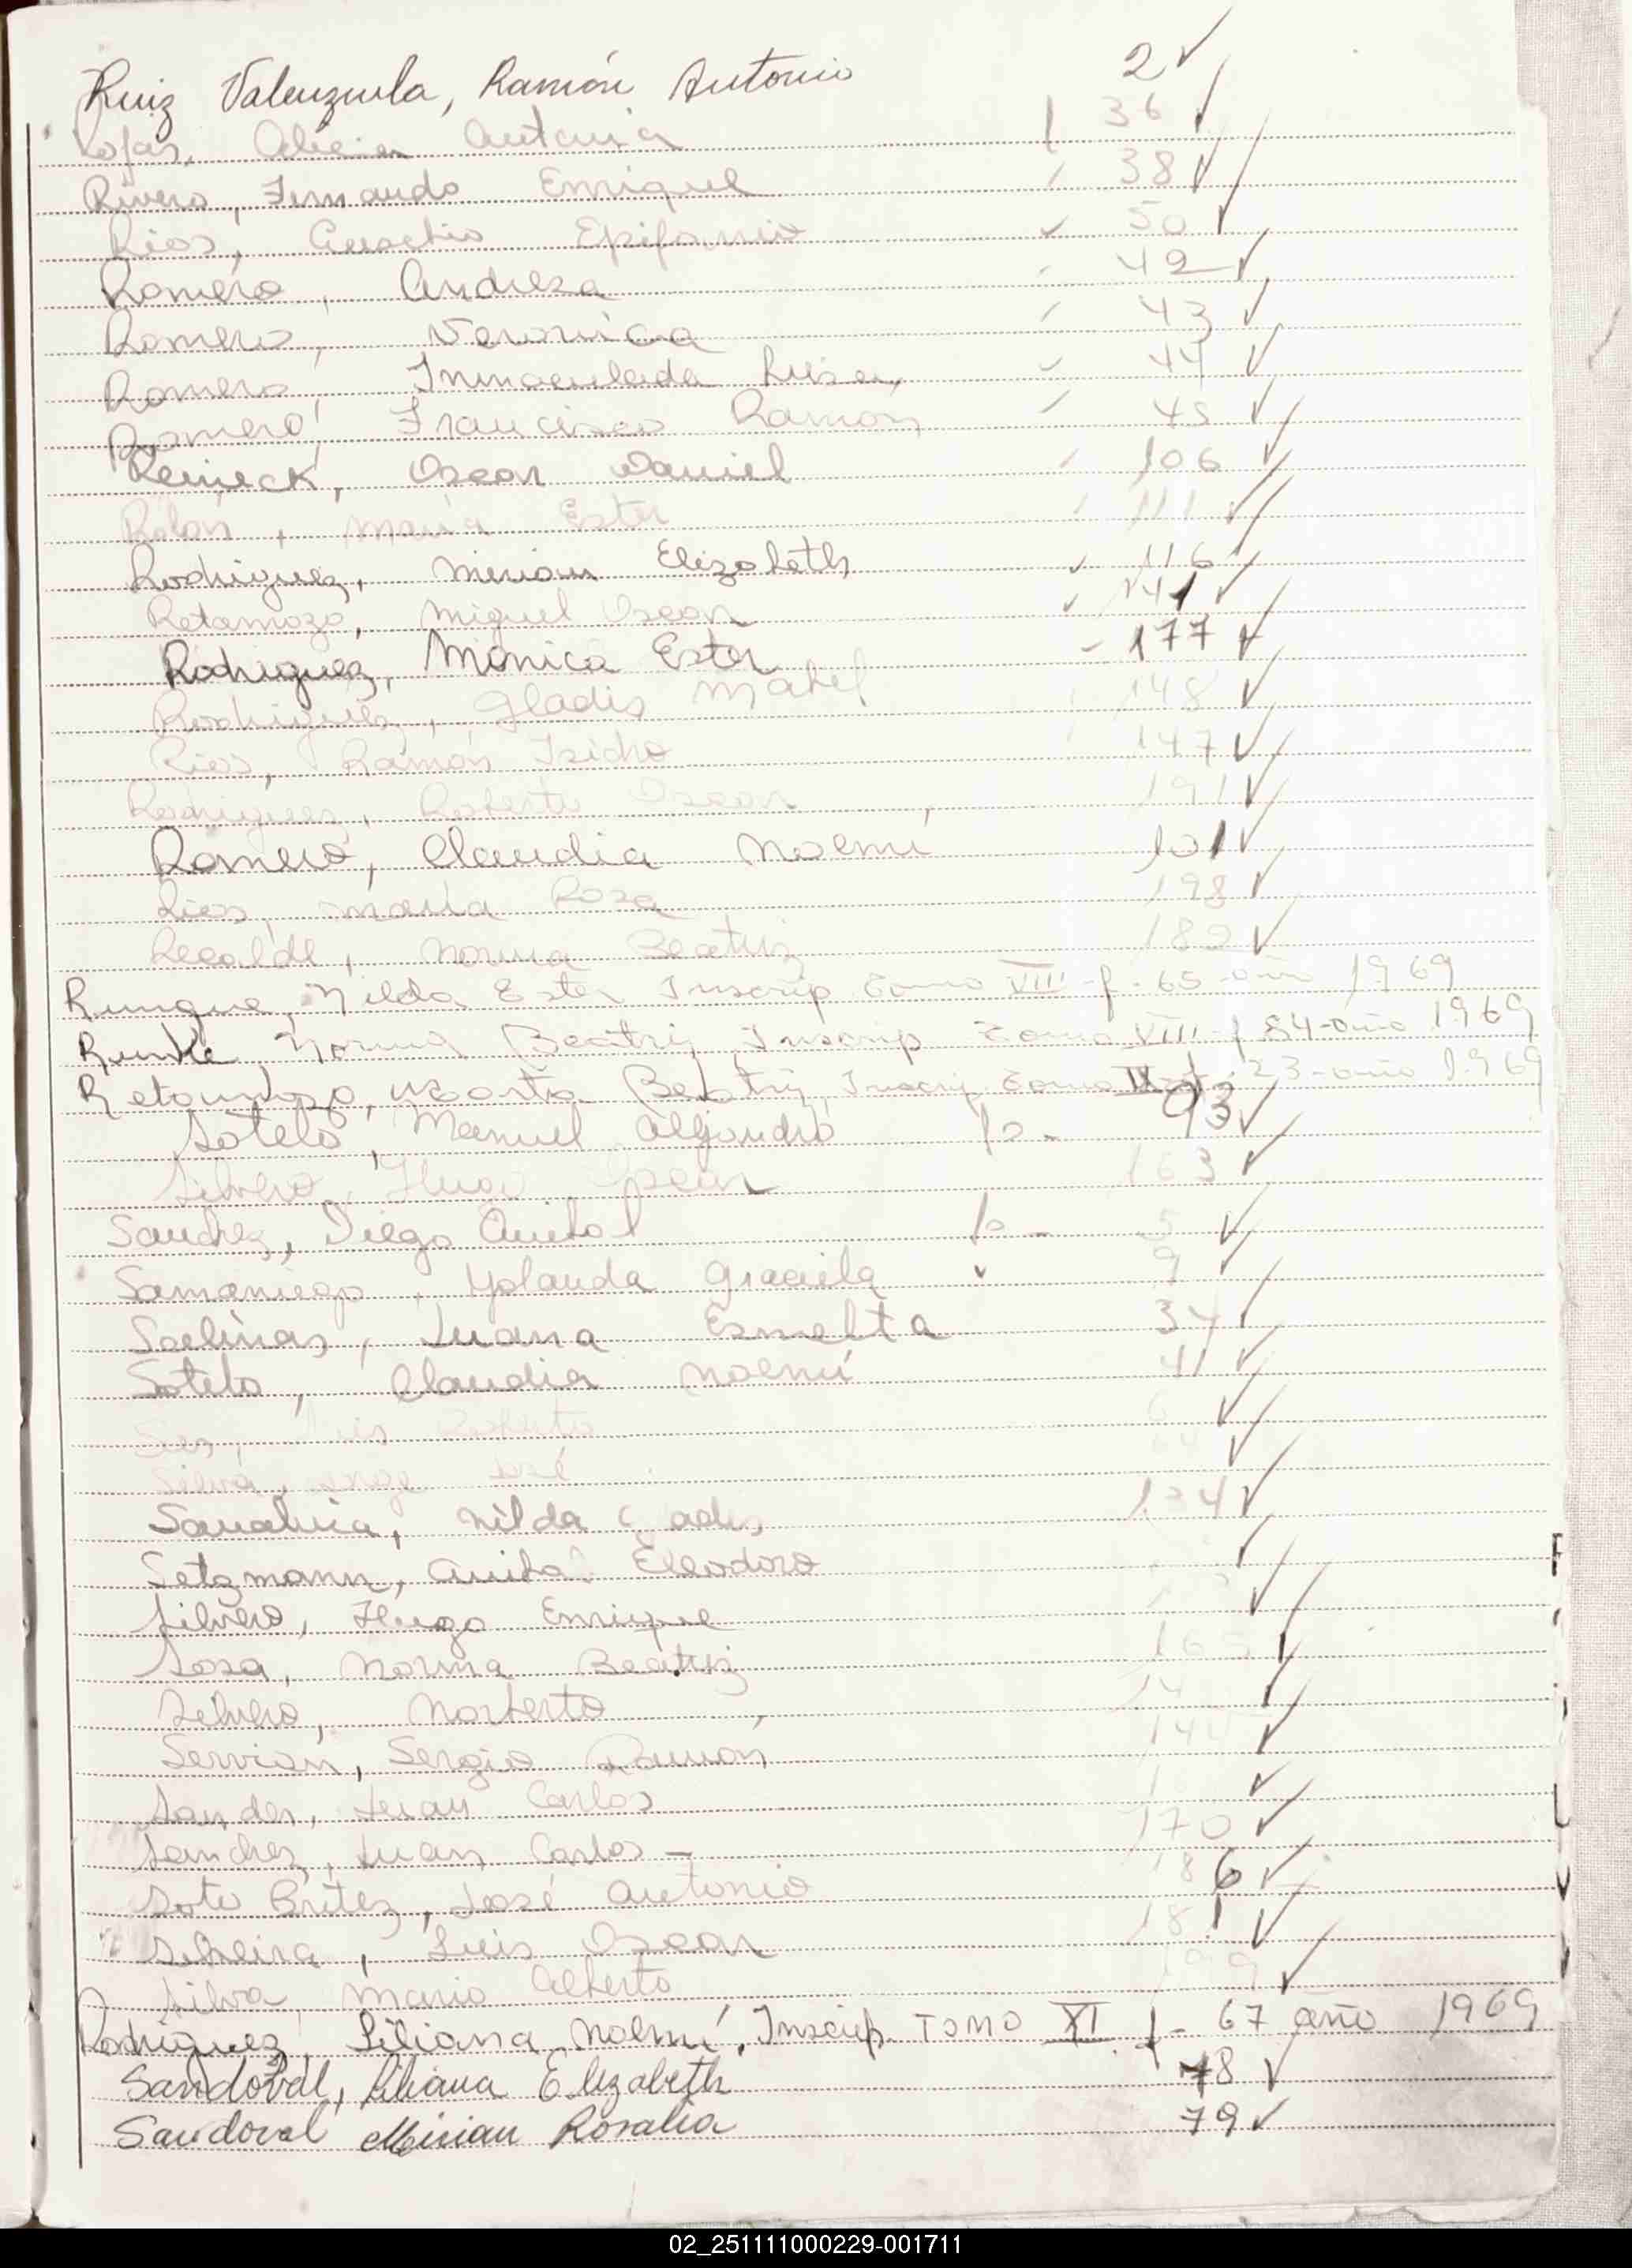 Ruiz Valenzuela, Ramón Antonio 2 ✓
Rojas, Alicia Antonia 36 ✓
Rivero, Fernando Enrique 38 ✓
Rios, Epifanio 50 ✓
Romero, Andresa 42 ✓
Romero, Veronica 43 ✓
Romero, Inmaculada Luisa 44 ✓
Romero, Francisco Ramon 45 ✓
Reineck, Oscar Daniel 106 ✓
Rolon, Maria Ester 111 ✓
Rodriguez, Miriam Elizabeth 116 ✓
Retamozo, Miguel Oscar 141 ✓
Rodriguez, Mónica Ester - 177 ✓
Rodriguez, Gladis Mabel 148 ✓
Rios, Ramón Isidro 147 ✓
Rodriguez, Roberto Oscar 191 ✓
Romero, Claudia Noemi 101 ✓
Rios, Maria Rosa 198 ✓
Recalde, Norma Beatriz ✓
Rungue, Nilda Ester Inscrip Tomo VIII - f. 65 - año 1969
Runke Norma Beatriz Inscrip Tomo VIII f 84 - año 1969
Retamozo, Beatriz, Inscrip Tomo 23 - año 1969
Sotelo, Manuel Alejandro fo - 93 ✓
Silvero, Hugo Oscar 163 ✓
Sanchez, Diego Anibal fo - 5 ✓
Samaniego, Yolanda Graciela 9 ✓
Salinas, Juana 34 ✓
Sotelo, Claudia Noemí 41 ✓
Luis Roberto ✓
Silva, Jorge José ✓
Sanabria, Nilda Gladis 134 ✓
Setzmann, Anibal Eleodoro ✓
Silvero, Hugo Enrique ✓
Sosa, Norma Beatriz 165 ✓
Silvero, Norberto ✓
Servian, Sergio Ramón ✓
Juan Carlos ✓
Sanchez, Juan Carlos - 170 ✓
Soto Britez, José Antonio 186 ✓
Silveira, Luis Oscar 181 ✓
Silva, Mario Alberto 199 ✓
Rodriguez, Liliana Noemí, Inscrip. TOMO XI f - 67 año 1969
Sandoval, Liliana Elizabeth 78 ✓
Sandoval Mirian Rosalia 79 ✓
02_251111000229-001711